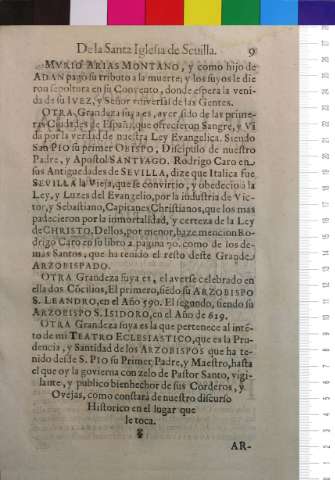 De la Santa Iglesia de Sevilla. 9
MVRIO ARIAS MONTANO, y como hijo de
ADAN pagò su tributo a la muerte, y los suyos le die
ron sepoltura en su Convento, donde espera la veni-
da de su IVEZ, y Señor vniversal de las Gentes.
OTRA Grandeza suya es, aver sido de las prime-
ras Ciudades de España, que ofrecieron Sangre, y Vi
da por la verdad de nuestra Ley Evangelica. Siendo
SAN PIO su primer OBISPO, Discipulo de nuestro
Padre, y Apostol SANTIAGO. Rodrigo Caro en
sus Antiguedades de SEVILLA, dize que Italica fue
SEVILLA la Vieja, que se convirtio, y obedeciò a la
Ley, y Luzes del Evangelio, por la industria de Vic-
tor, y Sebastiano, Capitanes Christianos, que los mas
padecieron por la inmortalidad, y certeza de la Ley
de CHRISTO. Dellos, por menor, haze mencion Ro-
drigo Caro en su libro 2. pagina 90. como de los de-
mas Santos, que ha tenido el resto deste Grande
ARZOBISPADO.
OTRA Grandeza suya es, el averse celebrado en
ella dos Cōcilios, El primero, siēdo su ARZOBISPO
S. LEANDRO, en el Año 590. El segundo, siendo su
ARZOBISPO S. ISIDORO, en el Año de 619.
OTRA Grandeza suya es la que pertenece al intē-
to de mi TEATRO ECLESIASTICO, que es la Pru-
dencia, y Santidad de los ARZOBISPOS que ha te-
nido desde S. PIO su Primer Padre, y Maestro, hasta
el que oy la govierna con zelo de Pastor Santo, vigi-
lante, y publico bienhechor de sus Corderos, y
Ovejas, como constarà de nuestro discurso
Historico en el lugar que
le toca.
AR-